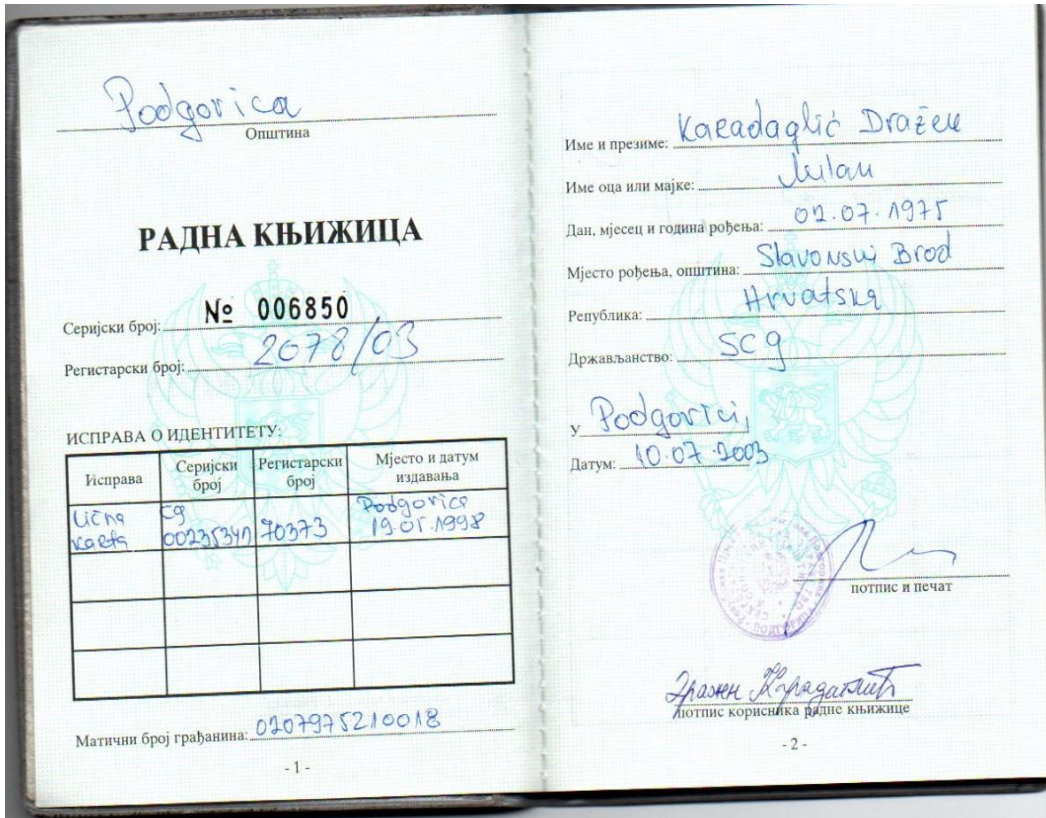 Podgorica
Општина
РАДНА КЊИЖИЦА
Серијски број: № 006850
Регистарски број: 2078/03
ИСПРАВА О ИДЕНТИТЕТУ:
Исправа Серијски број Регистарски број Мјесто и датум издавања
Lična karta cg 70373 Podgorica
Матични број грађанина: 0207975210018
- 1 -
Име и презиме: Karadaglić Dražen
Име оца или мајке: Milan
Дан, мјесец и година рођења: 02.07.1975
Мјесто рођења, општина: Slavonski Brod
Република: Hrvatska
Држављанство: SCG
У Podgorici,
Датум: 10.07.2003
потпис и печат
Дражен Карадаглић
потпис корисника радне књижице
- 2 -